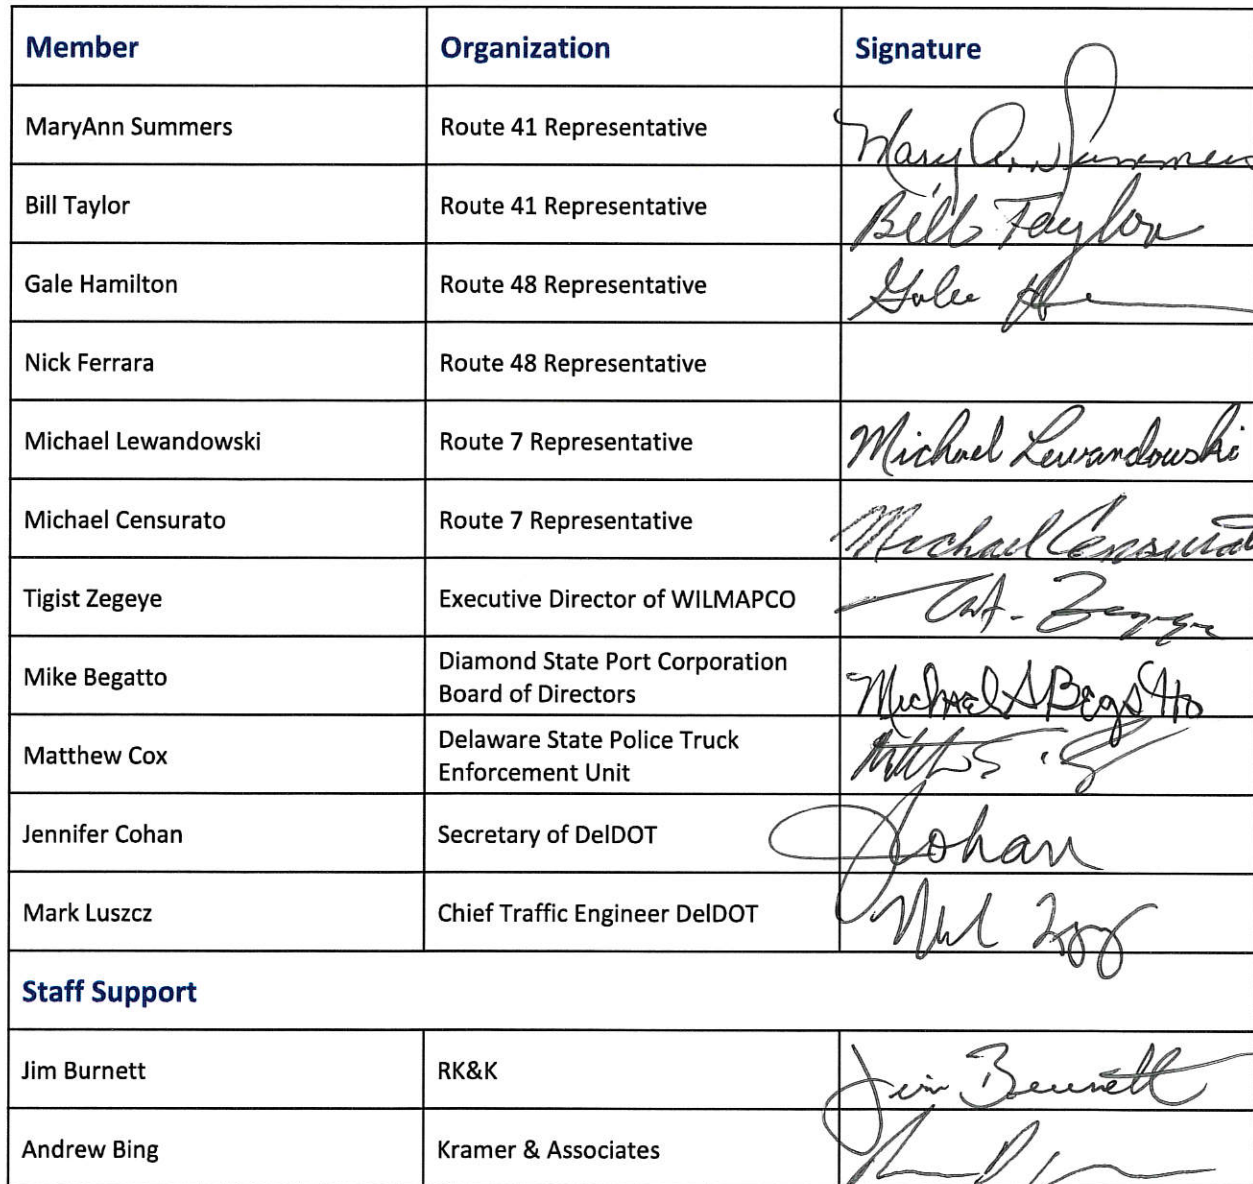 Member Organization Signature
MaryAnn Summers Route 41 Representative Mary Ann Summers
Bill Taylor Route 41 Representative Bill Taylor
Gale Hamilton Route 48 Representative Gale
Nick Ferrara Route 48 Representative
Michael Lewandowski Route 7 Representative Michael Lewandowski
Michael Censurato Route 7 Representative Michael Censurato
Tigist Zegeye Executive Director of WILMAPCO
Mike Begatto Diamond State Port Corporation
Board of Directors Michael S Begatto
Matthew Cox Delaware State Police Truck
Enforcement Unit
Jennifer Cohan Secretary of DelDOT JCohan
Mark Luszcz Chief Traffic Engineer DelDOT
Staff Support
Jim Burnett RK&K Jim Burnett
Andrew Bing Kramer & Associates